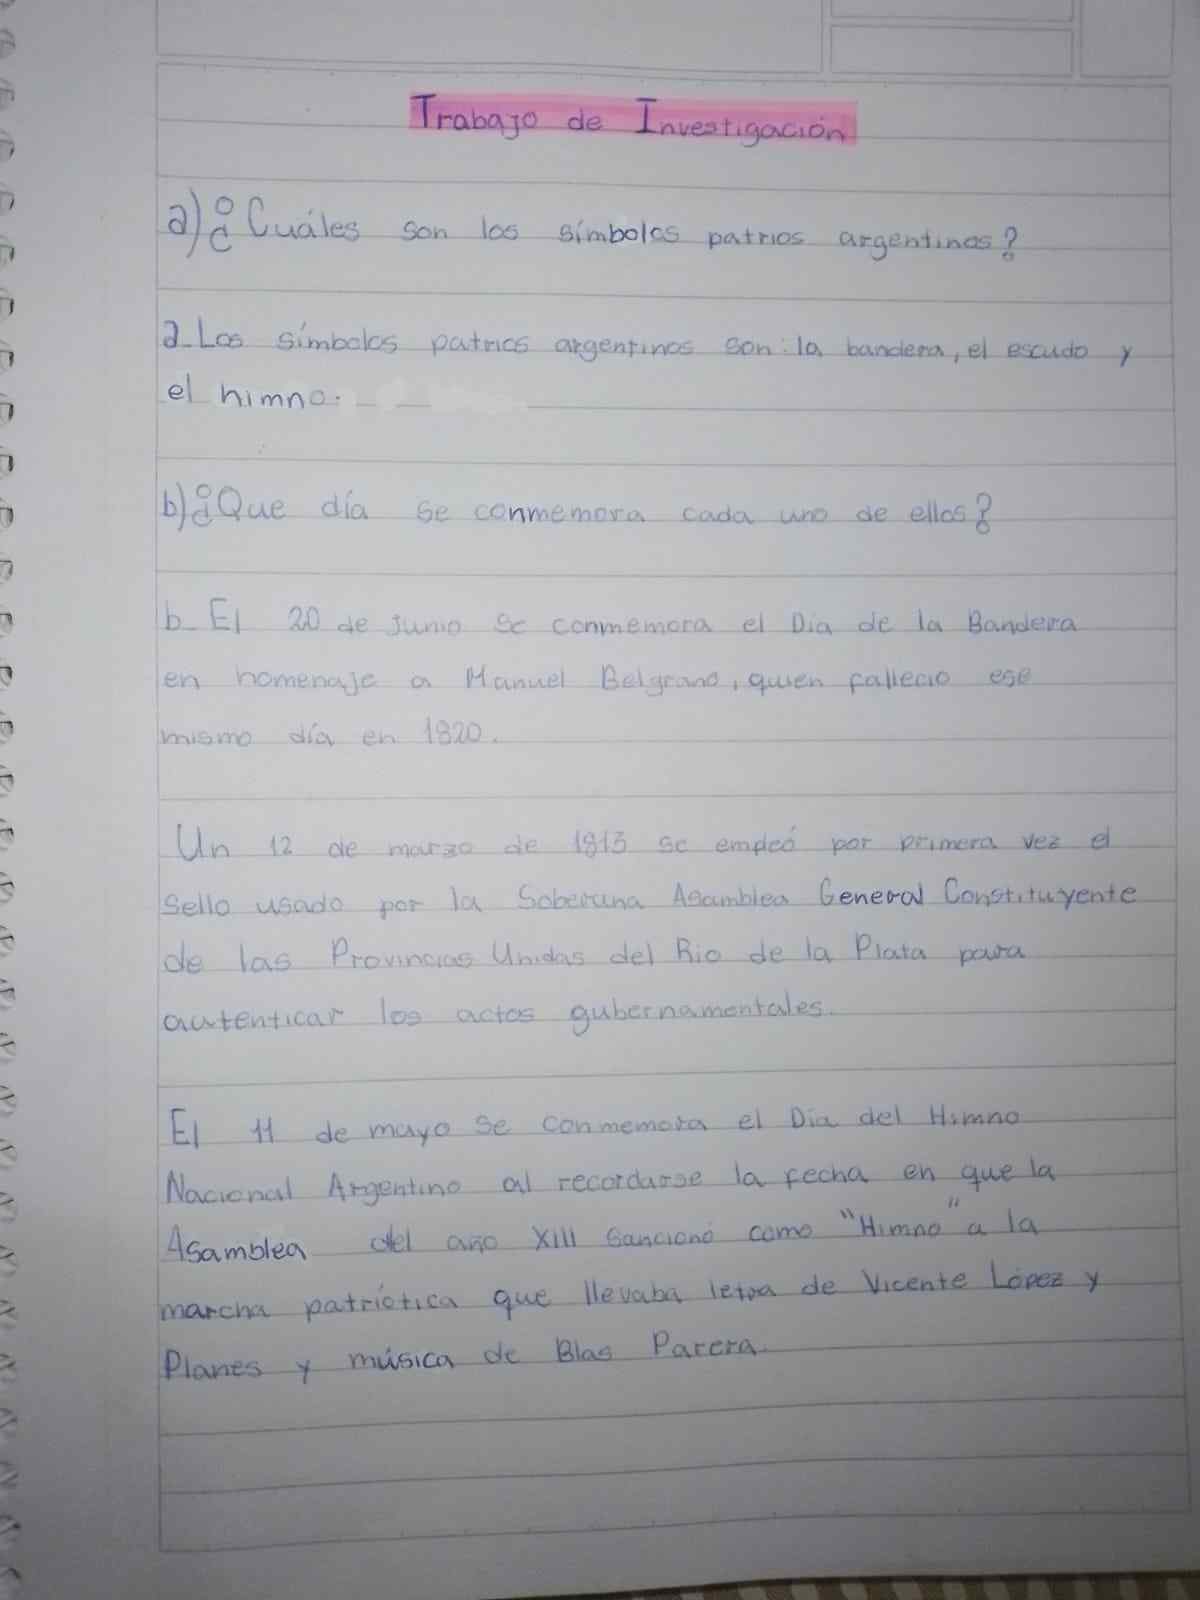 Trabajo de Investigación
a) ¿Cuáles son los símbolos patrios argentinos?
a_ Los símbolos patrios argentinos son: la bandera, el escudo y
el himno.
b) ¿Que día se conmemora cada uno de ellos?
b_ El 20 de Junio se conmemora el Dia de la Bandera
en homenaje a Manuel Belgrano, quien fallecio ese
mismo día en 1820.
Un 12 de marzo de 1813 se empleó por primera vez el
sello usado por la Soberana Asamblea General Constituyente
de las Provincias Unidas del Rio de la Plata para
autenticar los actos gubernamentales.
El 11 de mayo se conmemora el Dia del Himno
Nacional Argentino al recordarse la fecha en que la
Asamblea del año XIII Sancionó como "Himno" a la
marcha patriótica que llevaba letra de Vicente López y
Planes y música de Blas Parera.